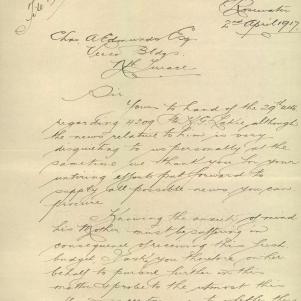 Rosewater
2nd April 1917
Chas A Edmunds Esq
Verco Bldgs
Nth Terrace
Sir
Yours to hand of the 29th ult
regarding 4209 Pte W G although
the news relative to him is very
disquieting to us personally at the
sametime we thank you for your
untiring efforts put forward to
supply all possible news you can
procure
Knowing the anxiety of mind
his Mother must be suffering in
consequence of receiving this fresh
budget I ask you therefore on her
behalf to pursue further in the
matter & probe to the utmost the